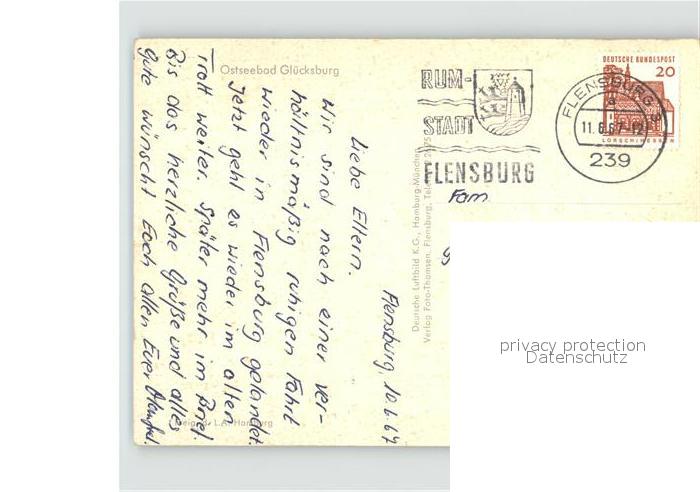 Ostseebad Glücksburg
Flensburg, 10.6.67
Liebe Eltern.
Wir sind nach einer ver-
hältnismäßig ruhigen Fahrt
wieder in Flensburg gelandet.
Jetzt geht es wieder im alten
Trott weiter. Später mehr im Brief.
Bis das herzliche Grüße und alles
Gute wünscht Euch allen Euer
L.A. Hamburg
Deutsche Luftbild K.G., Hamburg-München
Verlag Foto-Thomsen, Flensburg,
RUM-
STADT
FLENSBURG
FLENSBURG
a
11.6.67-12
239
DEUTSCHE BUNDESPOST
20
LORSCH/HESSEN
Fam.
privacy protection
Datenschutz